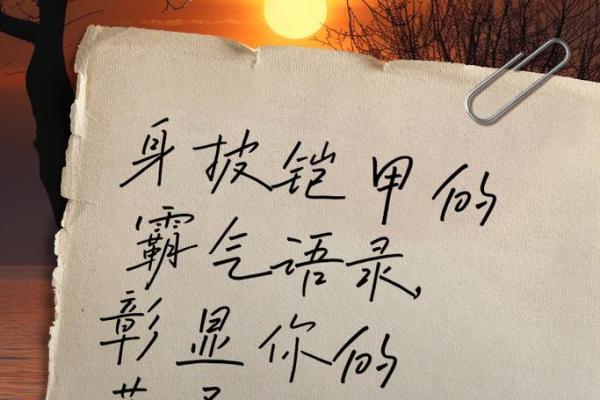 身披铠甲的
霸气语录，
彰显你的